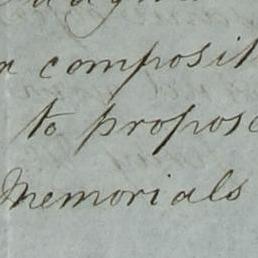 a composit
to propose
Memorials